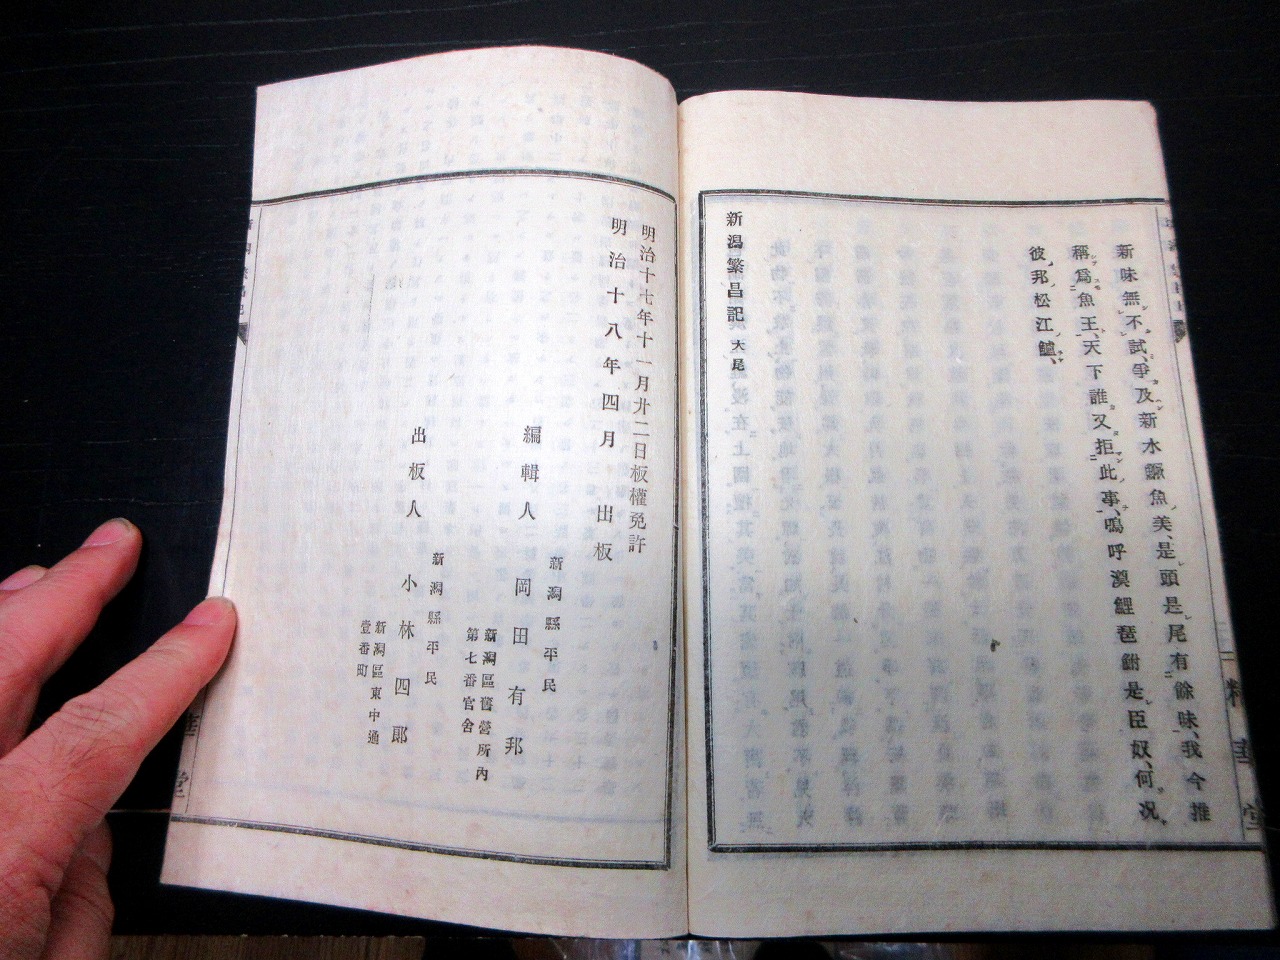 新味無不試、爭及新水鱖魚美、是頭是尾有餘味、我今推
稱爲魚王、天下誰又拒此事、嗚呼漠鯉琶鮒是臣奴、何况
彼邦松江鱸、
新潟繁昌記 大尾
明治十七年十一月廿二日板權免許
明治十八年四月 出板
新潟縣平民
編輯人 岡田有邦
新潟區舊營所內
第七番官舍
新潟縣平民
出板人 小林四郎
新潟區東中通
壹番町
精華堂
華堂